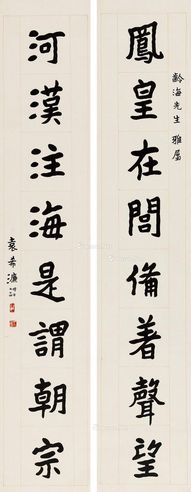 齡海先生 雅屬
鳳皇在閣備著聲望
河漢注海是謂朝宗
袁希濂